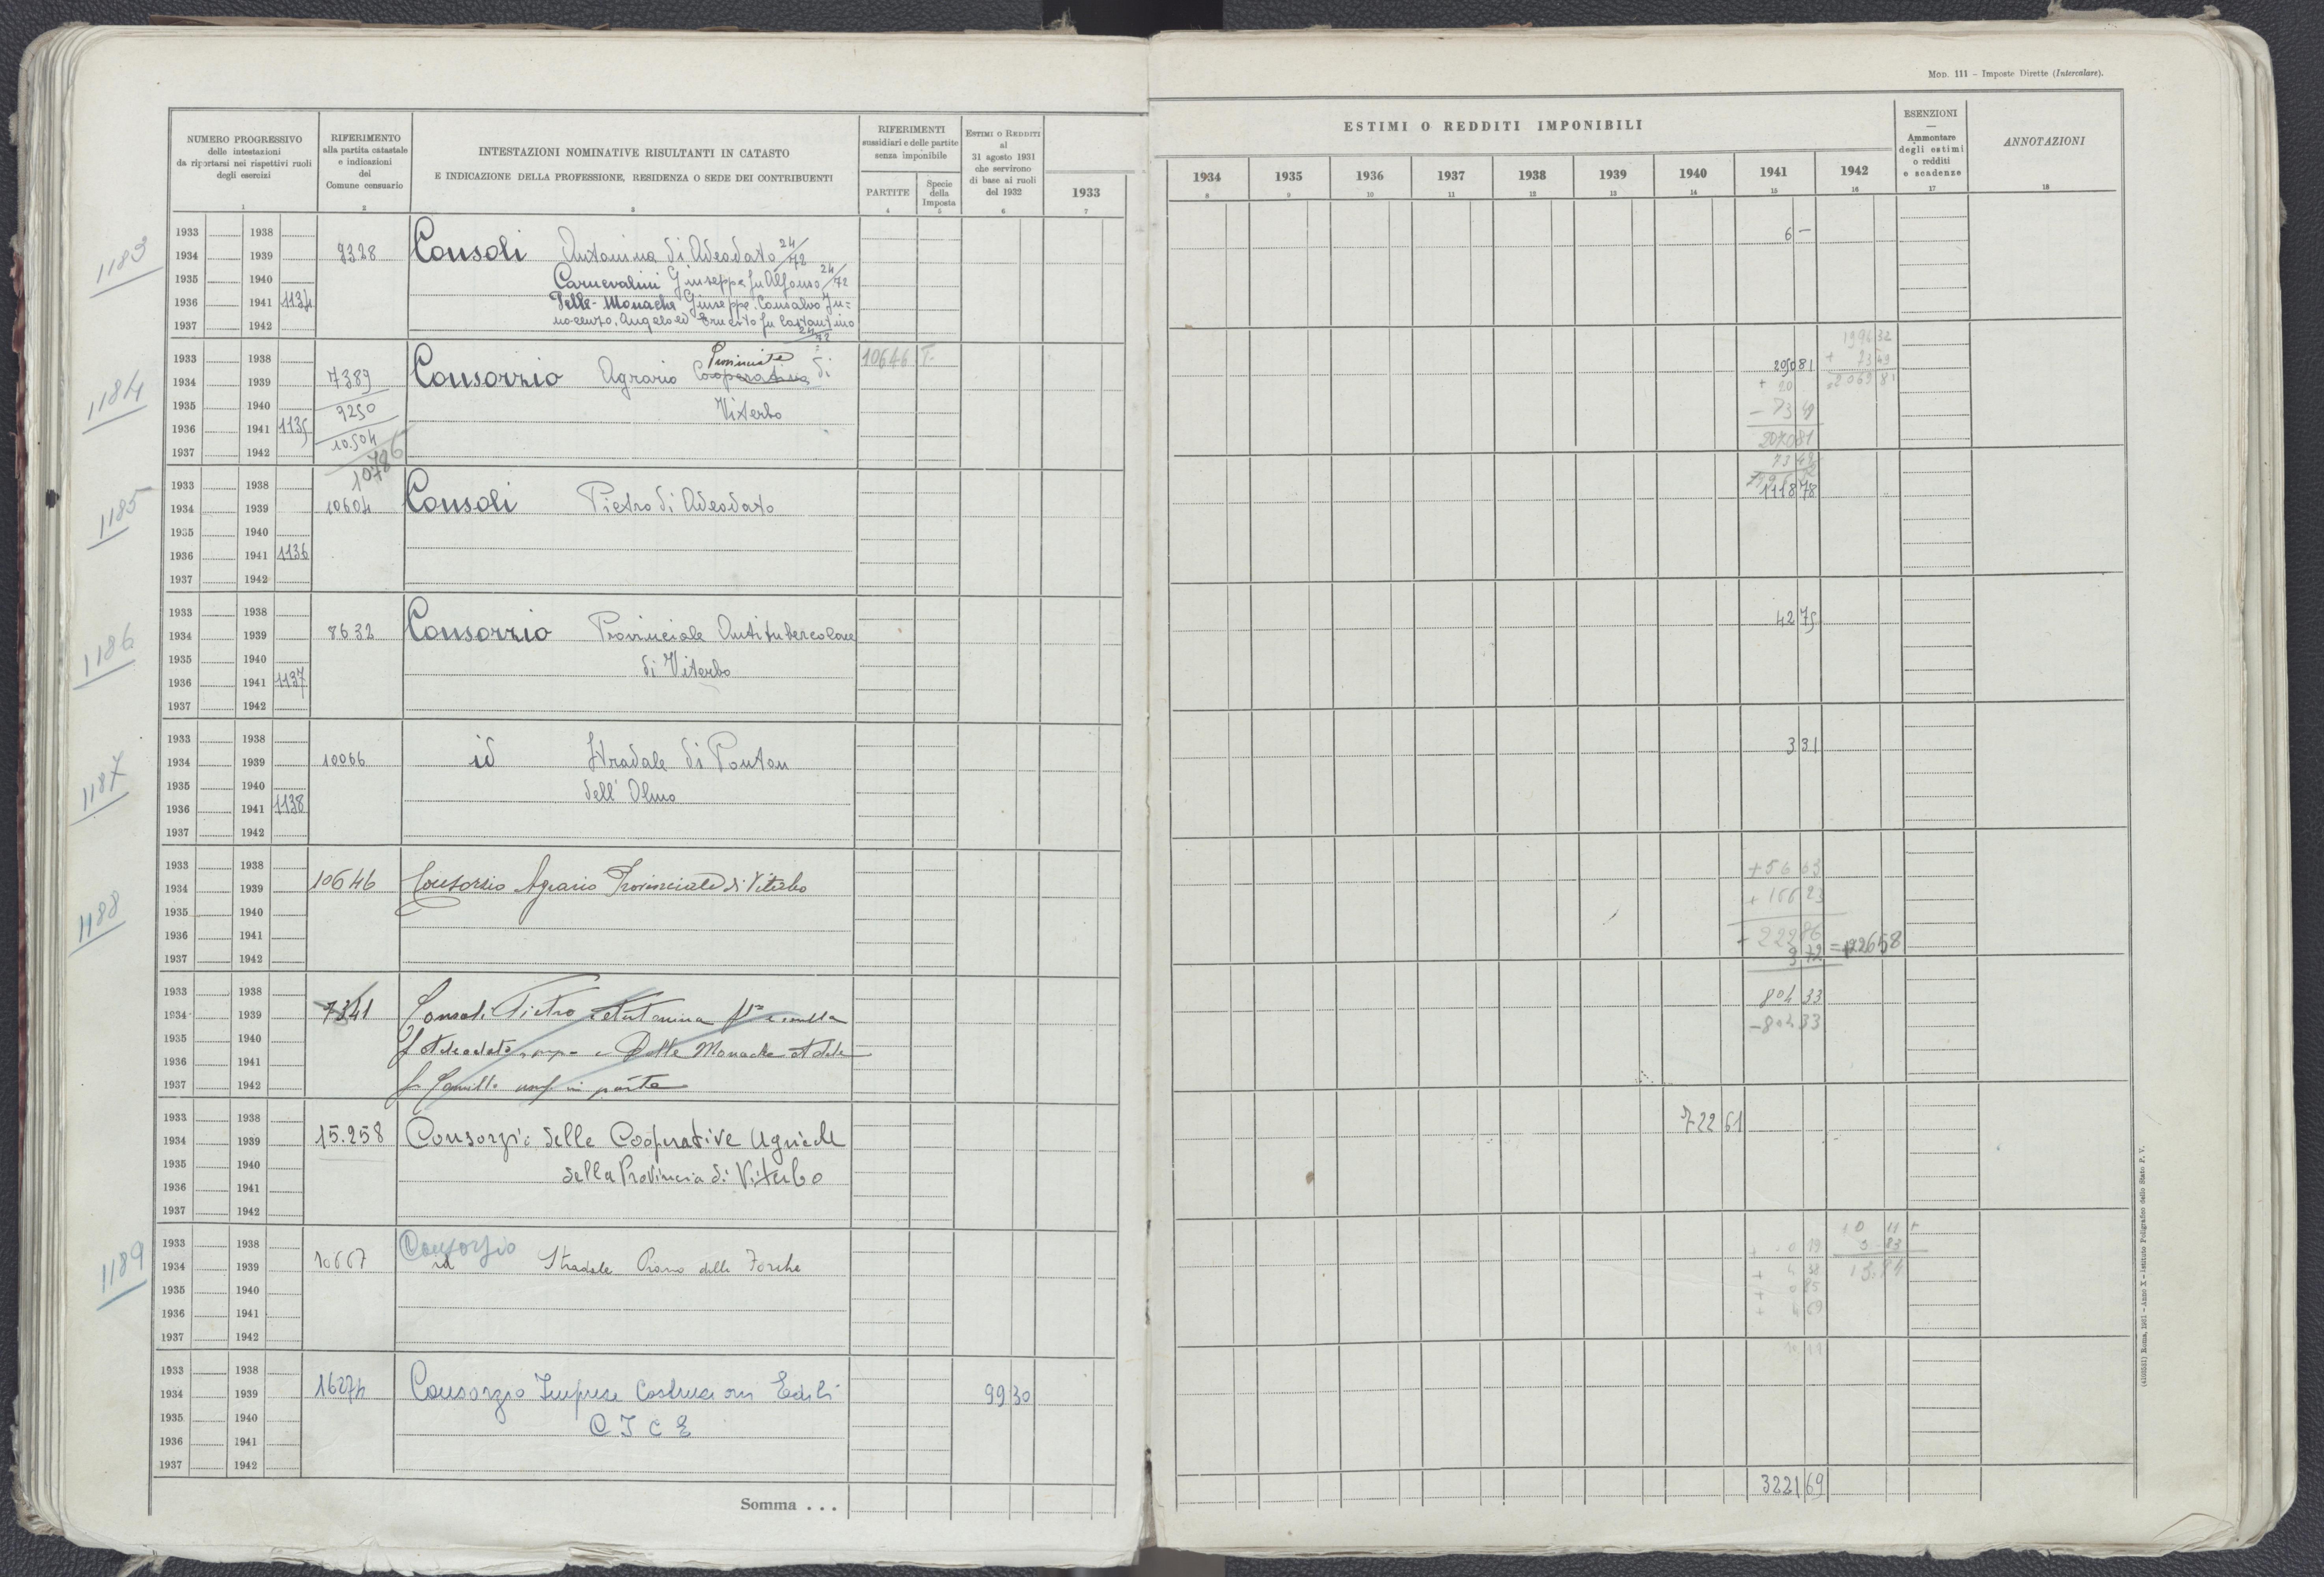 Mod. 111 - Imposte Dirette (Intercalare).
NUMERO PROGRESSIVO
delle intestazioni
da riportarsi nei rispettivi ruoli
degli esercizi
1
RIFERIMENTO
alla partita catastale
e indicazioni
del
Comune censuario
2
INTESTAZIONI NOMINATIVE RISULTANTI IN CATASTO
E INDICAZIONE DELLA PROFESSIONE, RESIDENZA O SEDE DEI CONTRIBUENTI
3
RIFERIMENTI
sussidiari e delle partite
senza imponibile
PARTITE
4
Specie
della
Imposta
5
ESTIMI O REDDITI
al
31 agosto 1931
che servirono
di base ai ruoli
del 1932
6
1933
7
ESTIMI O REDDITI IMPONIBILI
1934 1935 1936 1937 1938 1939 1940 1941 1942
8 9 10 11 12 13 14 15 16
ESENZIONI
—
Ammontare
degli estimi
o redditi
e scadenze
17
ANNOTAZIONI
18
1183
1933 1938
1934 1939 9328 Consoli Antonina di Adeodato 24/72 6 —
1935 1940 Carnevalini Giuseppe fu Alfonso 24/72
1936 1941 1134 Delle-Monache Giuseppe, Consalvo In=
1937 1942 nocenzo, Angelo ed Ernesto fu Costantino
24/72
1184
1933 1938 Provinciale 10646 T. 1996 32
1934 1939 7389 Consorzio Agrario Cooperativa di 2050 81 + 73 49
1935 1940 9250 Viterbo + 20 2069 81
1936 1941 1135 10.504 - 73 49
1937 1942 10786 2070 81
73 49
1185
1933 1938
1934 1939 10604 Consoli Pietro di Adeodato 1118 78
1935 1940
1936 1941 1136
1937 1942
1186
1933 1938
1934 1939 8632 Consorzio Provinciale Antitubercolare 42 75
1935 1940 di Viterbo
1936 1941 1137
1937 1942
1187
1933 1938
1934 1939 10066 id Stradale di Ponton 3 31
1935 1940 dell'Olmo
1936 1941 1138
1937 1942
1188
1933 1938 + 56 63
1934 1939 10646 Consorzio Agrario Provinciale di Viterbo + 166 23
1935 1940
1936 1941 222 86
1937 1942 3 72 = 226 58
1933 1938 804 33
1934 1939 7341 Consoli Pietro Antonina
1935 1940 Delle Monache - 804 33
1936 1941
1937 1942 fu Camillo usuf in parte
1933 1938 722 61
1934 1939 15.258 Consorzio delle Cooperative Agricole
1935 1940 della Provincia di Viterbo
1936 1941
1937 1942
1189
1933 1938 Consorzio 10 11 +
1934 1939 10667 id Stradale Piano delle Forche + 0 19 3 83
1935 1940 + 4 38 13.94
1936 1941 + 0 85
1937 1942 + 4 69
1933 1938
1934 1939 16274 Consorzio Imprese Costruzioni Edili 99 30
1935 1940 C I C E
1936 1941
1937 1942
Somma . . . 3221 69
(4102551) Roma, 1931 - Anno X - Istituto Poligrafico dello Stato P. V.